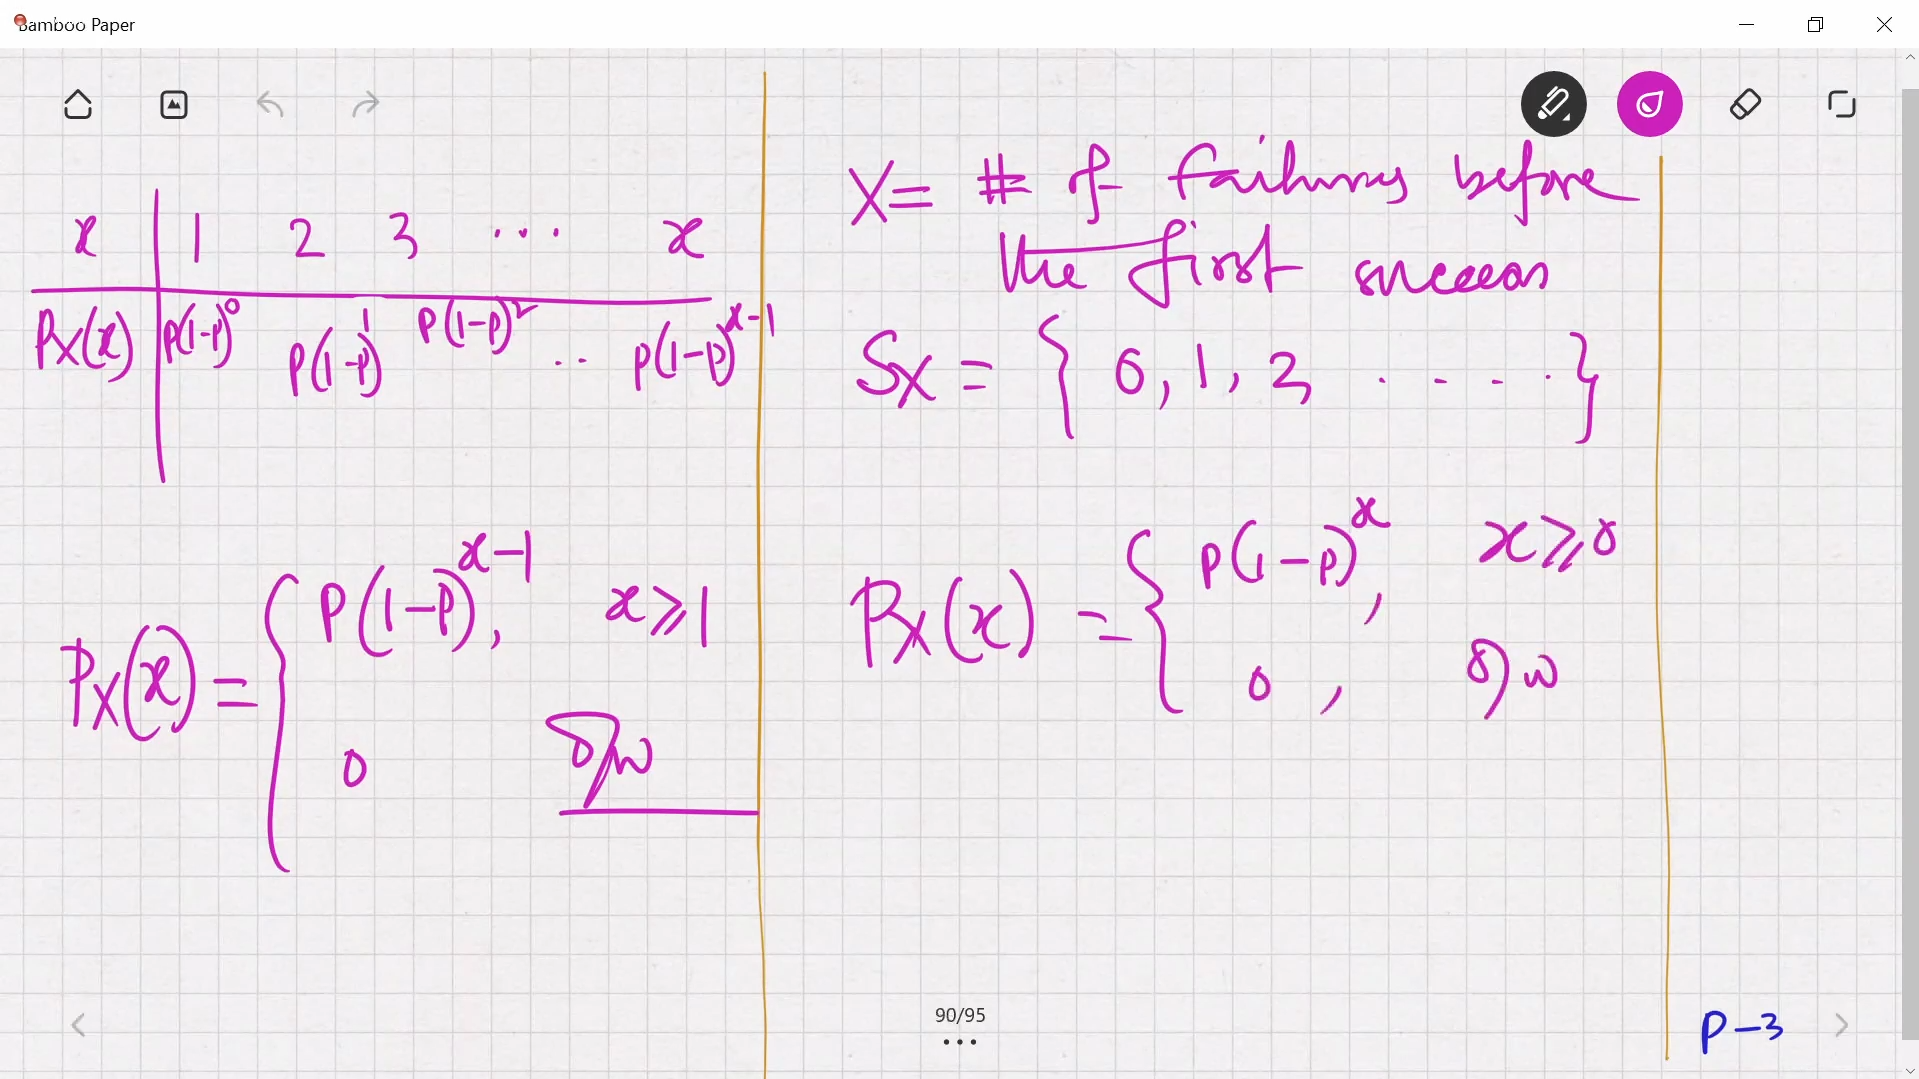 Bamboo Paper
x | 1 2 3 ... x
Px(x) | p(1-p)^0 p(1-p)^1 p(1-p)^2 .. p(1-p)^x-1
Px(x) = { p(1-p)^x-1, x ⩾ 1
0 o/w
X = # of failures before
the first success
Sx = { 0, 1, 2, . . . . }
Px(x) = { p(1-p)^x, x ⩾ 0
0, o/w
90/95
P-3